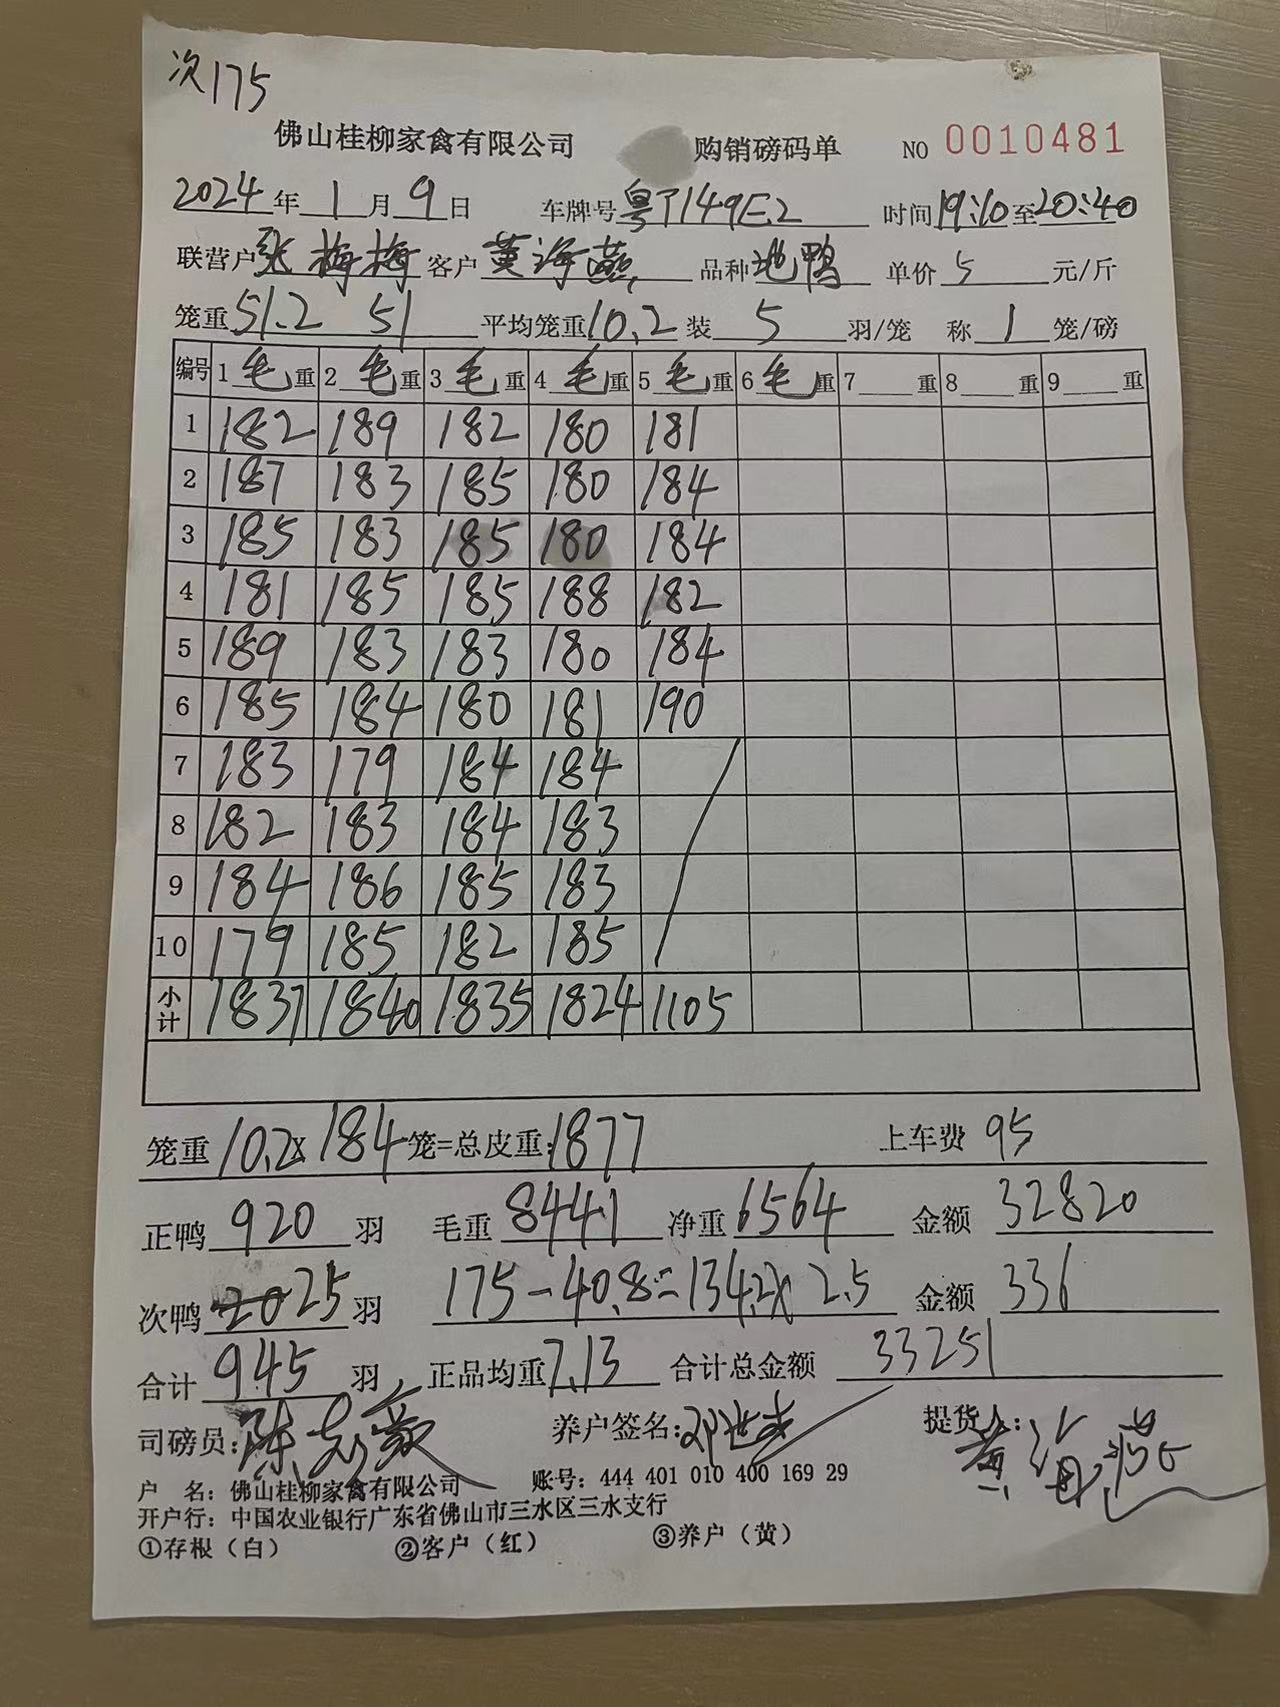 次175
佛山桂柳家禽有限公司 购销磅码单 NO 0010481
2024年1月9日 车牌号粤T149E2 时间19:10至20:40
联营户张梅梅 客户黄海燕 品种地鸭 单价5元/斤
笼重51.2 51 平均笼重10.2 装5羽/笼 称1笼/磅
编号 1毛重 2毛重 3毛重 4毛重 5毛重 6毛重 7重 8重 9重
1 182 189 182 180 181
2 187 183 185 180 184
3 185 183 185 180 184
4 181 185 185 188 182
5 189 183 183 180 184
6 185 184 180 181 190
7 183 179 184 184
8 182 183 184 183
9 184 186 185 183
10 179 185 182 185
小计 1837 1840 1835 1824 1105
笼重10.2×184笼=总皮重:1877 上车费95
正鸭920羽 毛重8441 净重6564 金额32820
次鸭20 25羽 175-40.8=134.2×2.5 金额336
合计945羽 正品均重7.13 合计总金额33251
司磅员: 养户签名: 提货人:黄海燕
户 名:佛山桂柳家禽有限公司 账号:444 401 010 400 169 29
开户行:中国农业银行广东省佛山市三水区三水支行
①存根(白) ②客户(红) ③养户(黄)